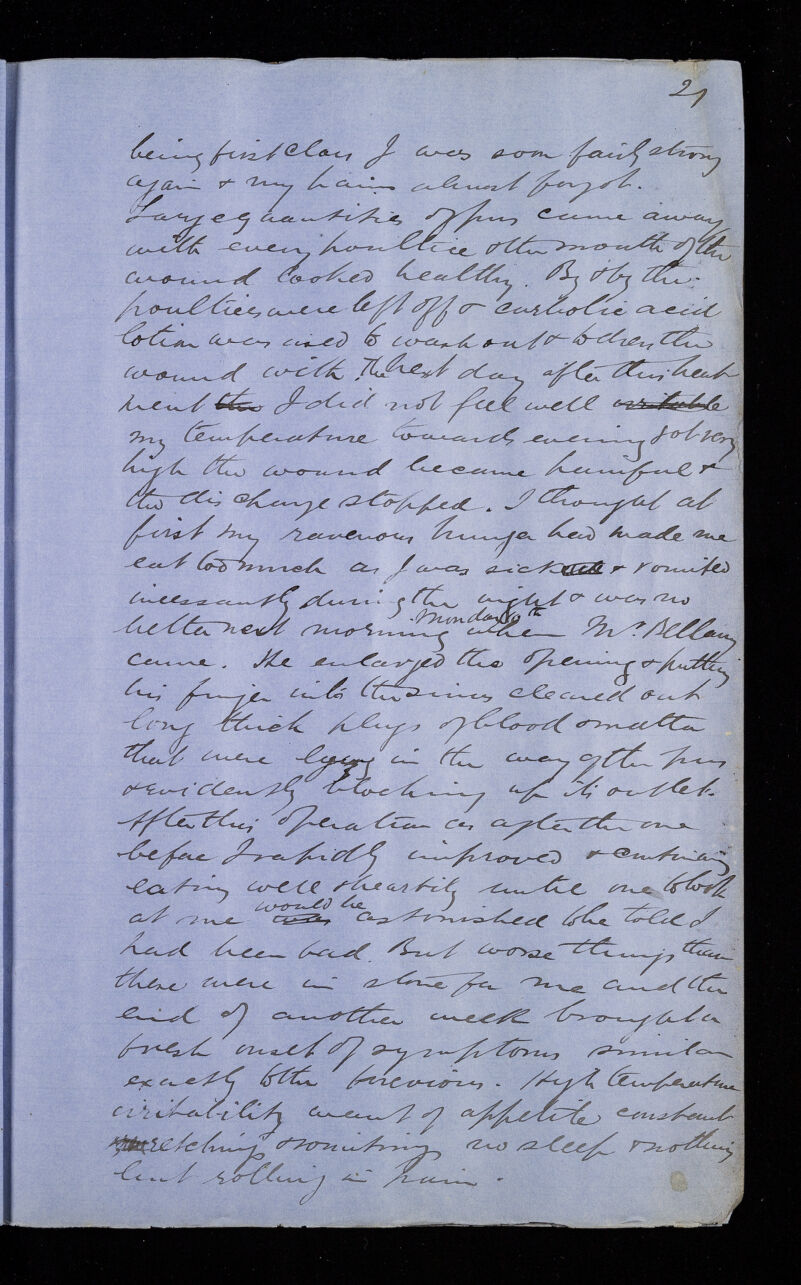 21
being first class I was soon fairly strong
again & my pains almost forgot.
Large quantities of pus came away
with every poultice & the mouth of the
wound looked healthy. By & by the
poultices were left off & carbolic acid
lotion was used to wash out & to dress the
wound with. The next day after this treat
ment the I did not feel well irritable
my temperature towards evening got very
high the wound became painful &
the discharge stopped. I thought at
first my ravenous hunger had made me
eat too much as I was sick & vomited
incessantly during the night & was no
better next morning Monday when Mr. Bellamy
came. He enlarged the opening & putting
his finger into the sinus cleared out
long thick plugs of blood & matter
that were lying in the way of the pus
& evidently blocking up its outlet.
After this operation as after the one
before I rapidly improved & continuing
eating well & heartily until one to look
at me was would be astonished to be told I
had been bad. But worse things than
these were in store for me and the
end of another week brought a
fresh onset of symptoms similar
exactly to the previous. High temperature
irritability want of appetite constant
retching & vomiting no sleep & nothing
but rolling in pain.